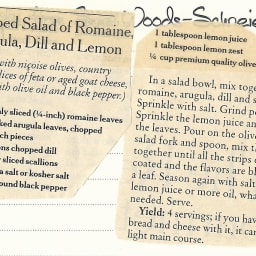 Foods-Salads
ped Salad of Romaine,
gula, Dill and Lemon
with niçoise olives, country
lices of feta or aged goat cheese,
th olive oil and black pepper.)
ly sliced (¼-inch) romaine leaves
ked arugula leaves, chopped
ch pieces
ons chopped dill
y sliced scallions
a salt or kosher salt
ound black pepper
1 tablespoon lemon juice
1 tablespoon lemon zest
¼ cup premium quality olive
In a salad bowl, mix the
romaine, arugula, dill and s
Sprinkle with salt. Grind pe
Sprinkle the lemon juice an
the leaves. Pour on the olive
salad fork and spoon, mix t
together until all the strips o
coated and the flavors are bl
a leaf. Season again with salt
lemon juice or more oil, wha
needed. Serve.
Yield: 4 servings; if you hav
bread and cheese with it, it can
light main course.